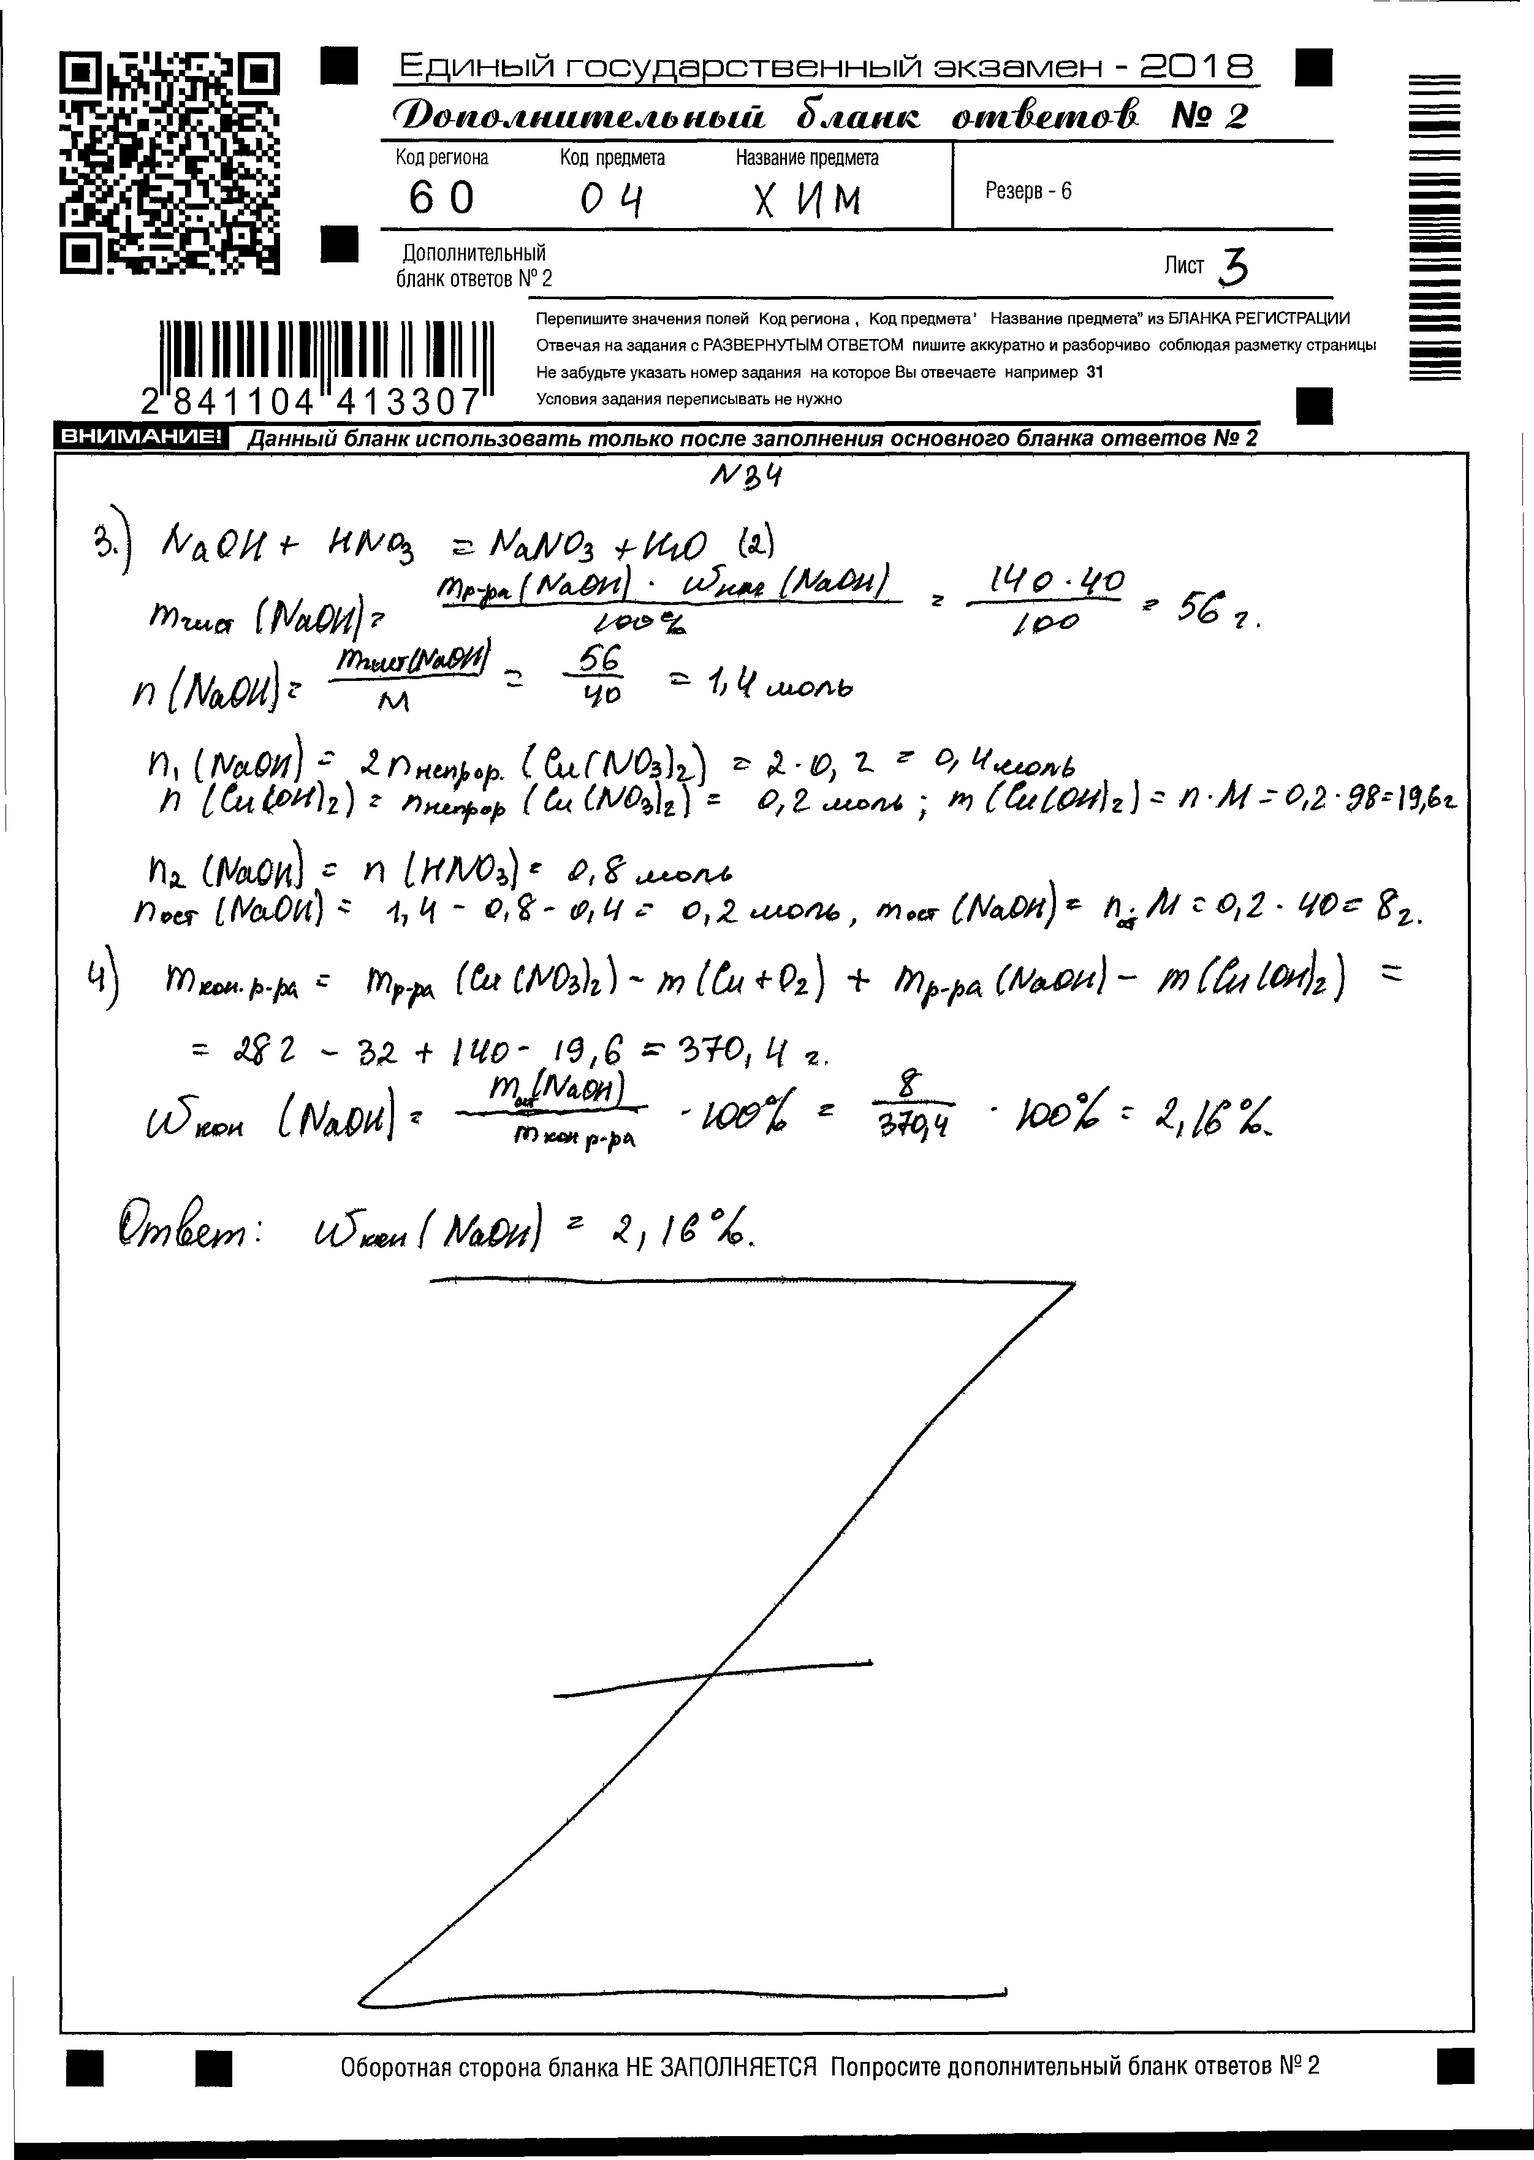 Единый государственный экзамен - 2018
Дополнительный бланк ответов № 2
Код региона Код предмета Название предмета
60 04 ХИМ
Резерв - 6
Дополнительный
бланк ответов № 2
Лист 3
Перепишите значения полей Код региона , Код предмета' Название предмета" из БЛАНКА РЕГИСТРАЦИИ
Отвечая на задания с РАЗВЕРНУТЫМ ОТВЕТОМ пишите аккуратно и разборчиво соблюдая разметку страницы
Не забудьте указать номер задания на которое Вы отвечаете например 31
Условия задания переписывать не нужно
2 841104 413307
ВНИМАНИЕ! Данный бланк использовать только после заполнения основного бланка ответов № 2
N34
3.) NaOH + HNO3 = NaNO3 + H2O (2)
mчист (NaOH) = mр-ра (NaOH) · ωнас (NaOH) / 100% = 140 · 40 / 100 = 56 г.
n (NaOH) = mчист(NaOH) / M = 56 / 40 = 1,4 моль
n1 (NaOH) = 2 nнепрор. (Cu(NO3)2) = 2 · 0,2 = 0,4 моль
n (Cu(OH)2) = nнепрор (Cu(NO3)2) = 0,2 моль ; m (Cu(OH)2) = n · M = 0,2 · 98 = 19,6 г
n2 (NaOH) = n (HNO3) = 0,8 моль
nост (NaOH) = 1,4 - 0,8 - 0,4 = 0,2 моль, mост (NaOH) = nост · M = 0,2 · 40 = 8 г.
4) mкон. р-ра = mр-ра (Cu(NO3)2) - m (Cu + O2) + mр-ра (NaOH) - m (Cu(OH)2) =
= 282 - 32 + 140 - 19,6 = 370,4 г.
ωкон (NaOH) = mост(NaOH) / mкон р-ра · 100% = 8 / 370,4 · 100% = 2,16 %.
Ответ: ωкон (NaOH) = 2,16 %.
Оборотная сторона бланка НЕ ЗАПОЛНЯЕТСЯ Попросите дополнительный бланк ответов № 2